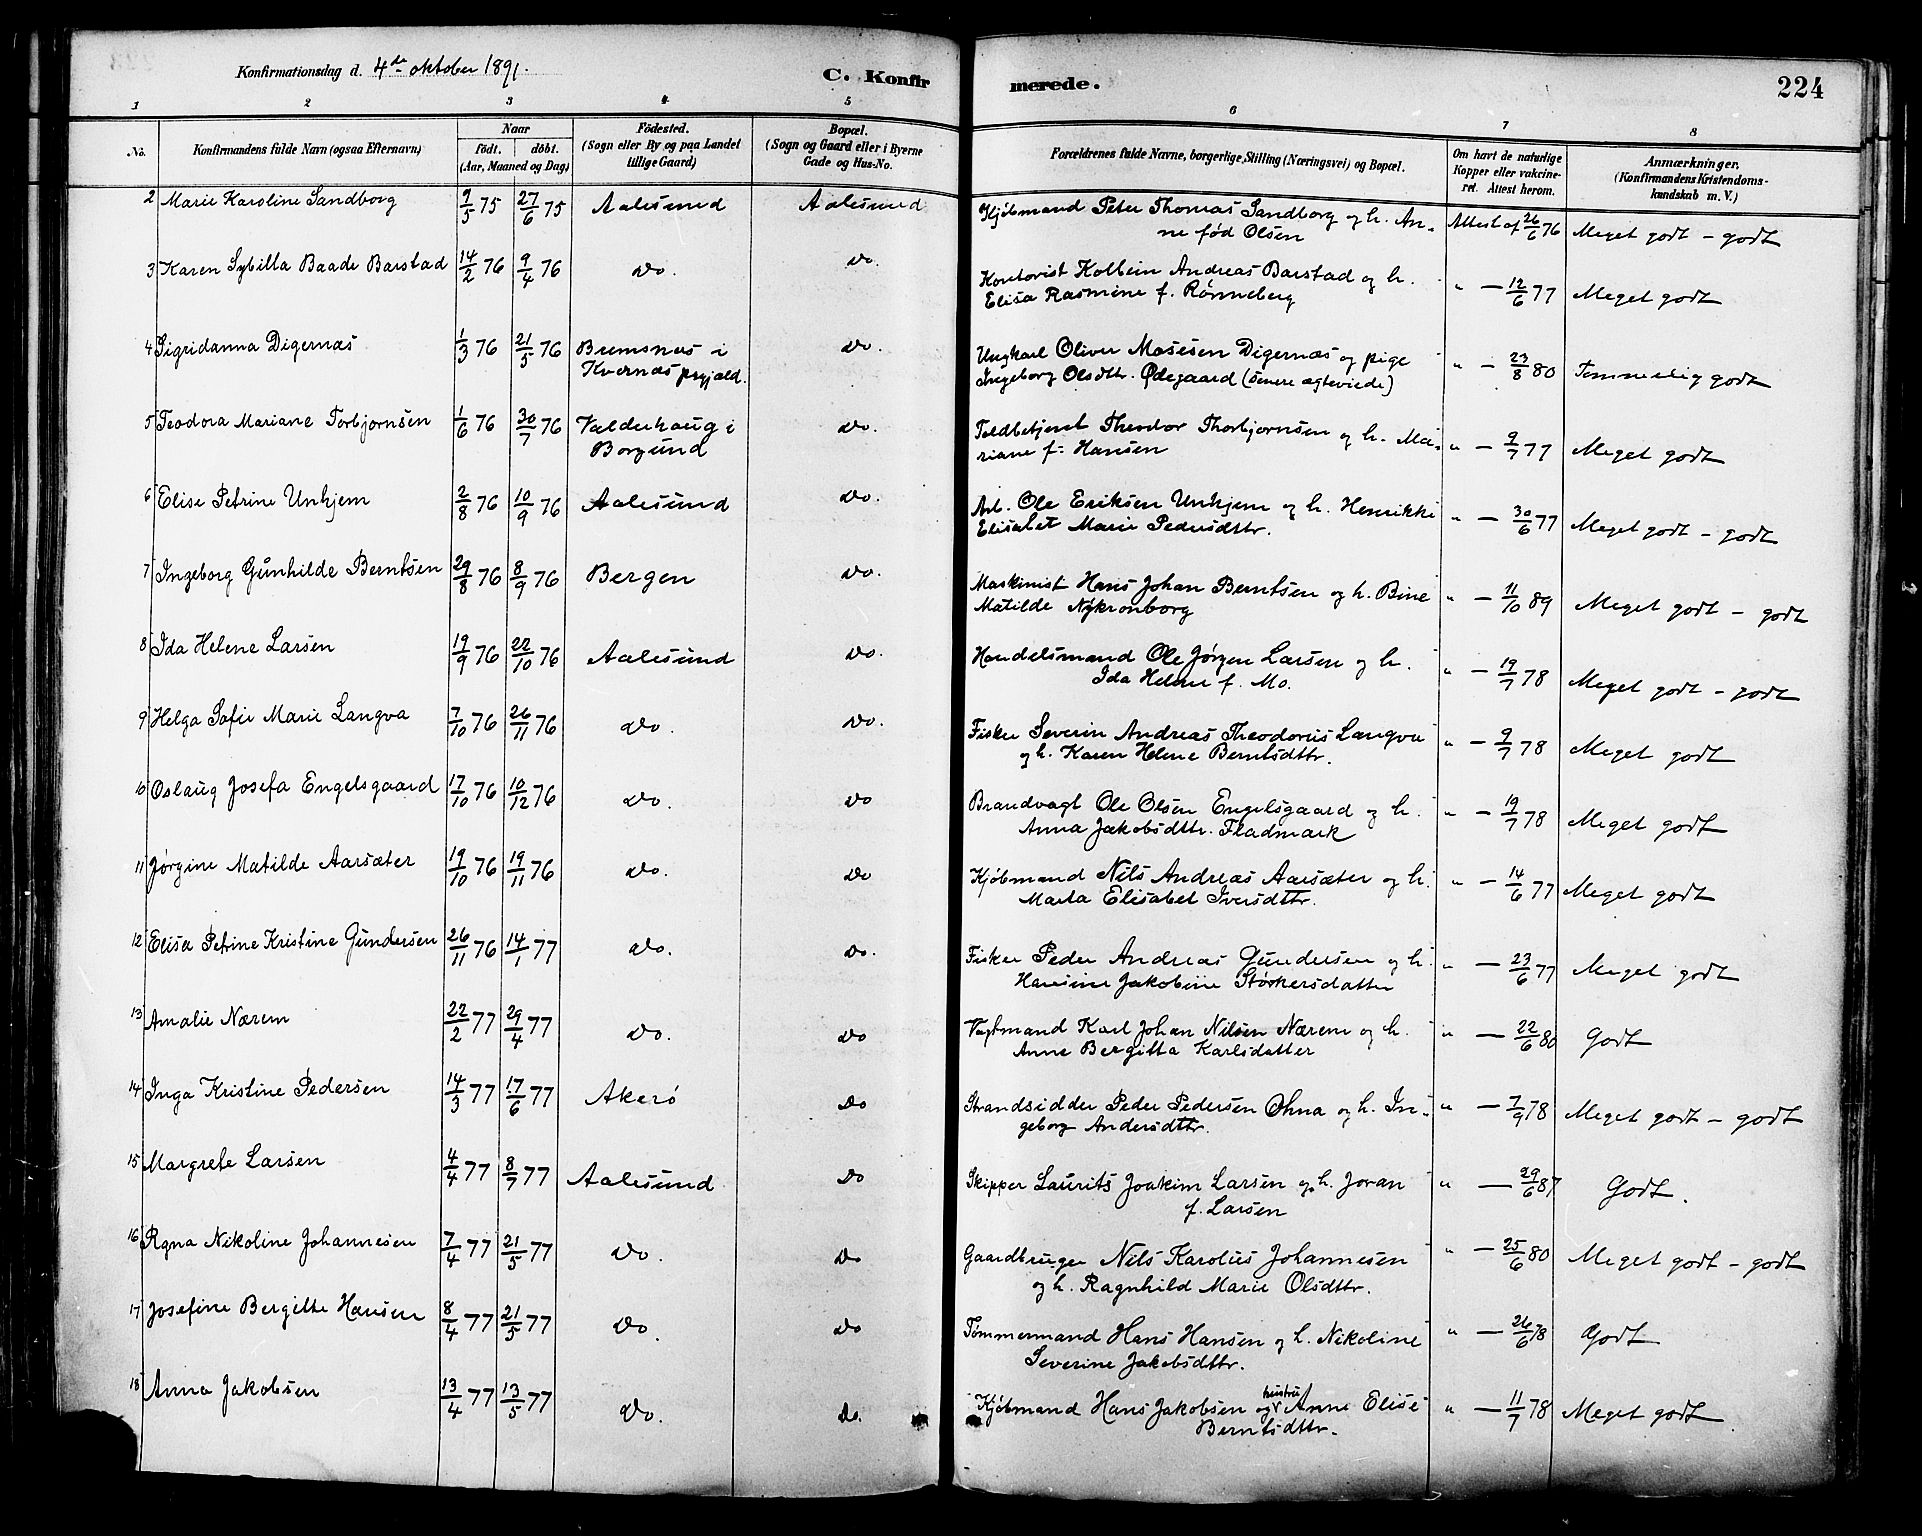 Konfirmationsdag d. 4de oktober 1891.
C. Konfirmerede.
224
1 2 3 4 5 6 7 8
No. Konfirmandens fulde Navn (ogsaa Efternavn) Naar født. døbt. (Aar, Maaned og Dag) Födested. (Sogn eller By og paa Landet tillige Gaard) Bopæl. (Sogn og Gaard eller i Byerne Gade og Hus-No. Forældrenes fulde Navne, borgerlige Stilling (Næringsvei) og Bopæl. Om havt de naturlige Kopper eller vakcineret. Attest herom. Anmærkninger. (Konfirmandens Kristendomskundskab m. V.)
2 Marie Karoline Sandborg 9/5 75 27/6 75 Aalesund Aalesund Kjøbmand Peter Thomas Sandborg og h. An-
ne fød Olsen Attest af 26/6 76 Meget godt - godt
3 Karen Sybilla Baade Barstad 14/2 76 9/4 76 Do. Do. Kontorist Kolbein Andreas Barstad og h.
Elisa Rasmine f. Rønneberg " - 12/6 77 Meget godt
4 Sigridanna Digernæs 1/3 76 21/5 76 Bremsnes i
Kvernæs prgjæld. Do. Ungkarl Oliver Mosesen Digernæs og pige
Ingeborg Olsdttr. Ødegaard (senere ægteviede) " - 23/8 80 Temmelig godt
5 Teodora Mariane Torbjørnsen 1/6 76 30/7 76 Valderhaug i
Borgund Do. Toldbetjent Theodor Thorbjørnsen og h. Ma-
riane f. Hansen " - 9/7 77 Meget godt
6 Elise Petrine Unhjem 2/8 76 10/9 76 Aalesund Do. Arb. Ole Eriksen Unhjem og h. Henrikke
Elisabet Marie Pedersdttr. " - 30/6 77 Meget godt - godt
7 Ingeborg Gunhilde Berntsen 29/8 76 8/9 76 Bergen Do. Maskinist Hans Johan Berntsen og h. Bine
Matilde Nykronborg " - 11/10 89 Meget godt - godt
8 Ida Helene Larsen 19/9 76 22/10 76 Aalesund Do. Handelsmand Ole Jørgen Larsen og h.
Ida Helene f. Mo. " - 19/7 78 Meget godt - godt
9 Helga Sofie Marie Langva 7/10 76 26/11 76 Do. Do. Fisker Severin Andreas Theodorus Langva
og h. Karen Helene Berntsdttr. " - 9/7 78 Meget godt
10 Oslaug Josefa Engelsgaard 17/10 76 10/12 76 Do. Do Brandvagt Ole Olsen Engelsgaard og h.
Anna Jakobsdttr. Fladmark " - 19/7 78 Meget godt
11 Jørgine Matilde Aarsæter 19/10 76 19/11 76 Do. Do Kjøbmand Nils Andreas Aarsæter og h.
Marta Elisabet Iversdttr. " - 14/6 77 Meget godt
12 Elisa Petrine Kristine Gundersen 26/11 76 14/1 77 Do. Do. Fisker Peder Andreas Gundersen og h.
Hansine Jakobine Størkersdatter " - 23/6 77 Meget godt
13 Amalie Nærem 22/2 77 29/4 77 Do. Do Vagtmand Karl Johan Nilsen Nærem og h.
Anne Bergitta Karlsdatter " - 22/6 80 Godt
14 Inga Kristine Pedersen 14/3 77 17/6 77 Akerø Do Strandsidder Peder Pedersen Ohna og h. In-
geborg Andersdttr. " - 7/9 78 Meget godt - godt
15 Margrete Larsen 4/4 77 8/7 77 Aalesund Do Skipper Laurits Joakim Larsen og h. Joran
f. Larsen " - 29/6 87 Godt.
16 Ragna Nikoline Johannesen 7/4 77 21/5 77 Do. Do Gaardbruger Nils Karolus Johannesen
og h. Ragnhild Marie Olsdttr. " - 25/6 80 Meget godt - godt
17 Josefine Bergitte Hansen 8/4 77 21/5 77 Do. Do Tømmermand Hans Hansen og h. Nikoline
Severine Jakobsdttr. " - 26/6 78 Godt
18 Anna Jakobsen 13/4 77 13/5 77 Do. Do. Kjøbmand Hans Jakobsen og hustru Anne Elise
Berntsdttr. " - 11/7 78 Meget godt